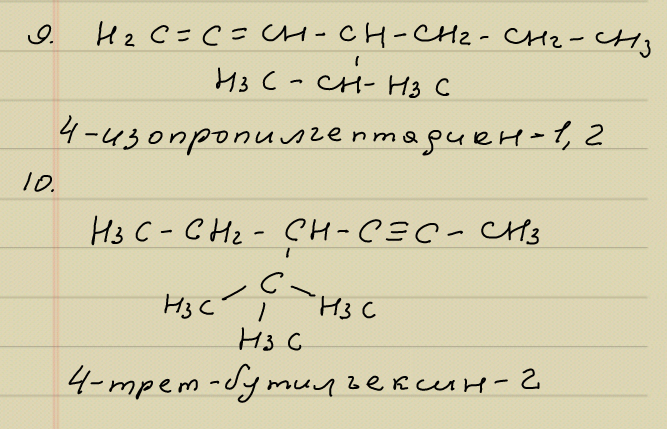 9. H₂C=C=CH-CH-CH₂-CH₂-CH₃
H₃C-CH-H₃C
4-изопропилгептадиен-1,2
10.
H₃C-CH₂-CH-C≡C-CH₃
C
H₃C H₃C
H₃C
4-трет-бутилгексин-2